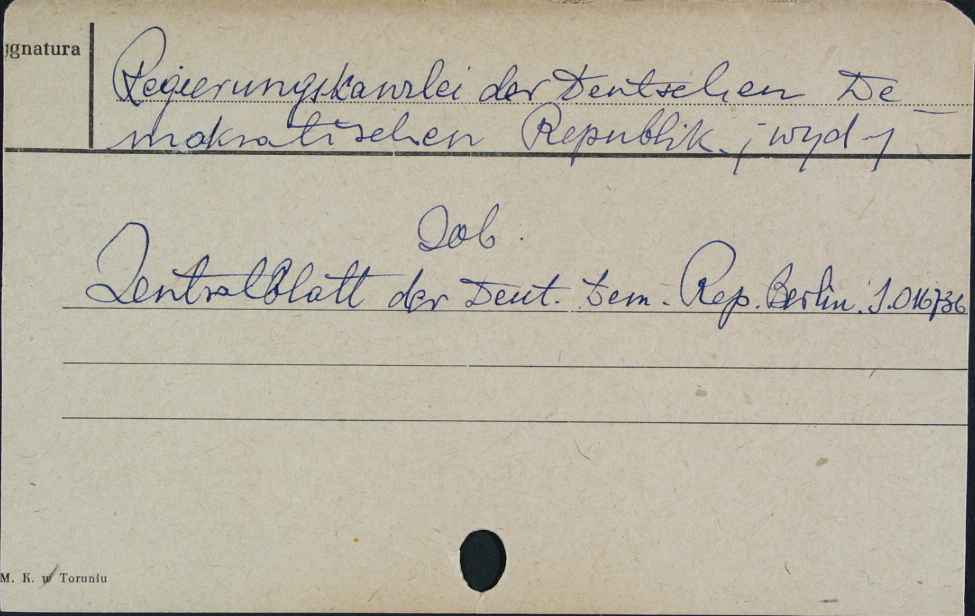 ygnatura
Regierungskanzlei der Deutschen De-
mokratischen Republik. ; wyd-j
Zob.
Zentralblatt der Deut. Dem. Rep. Berlin. S.016736
M. K. w Toruniu